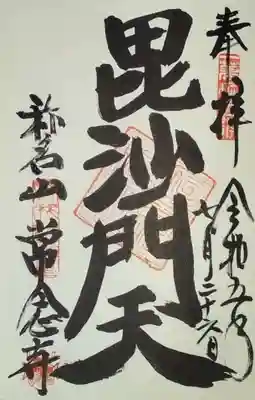 奉拝
令和五年
七月二十六日
毘沙門天
称名山 常念寺